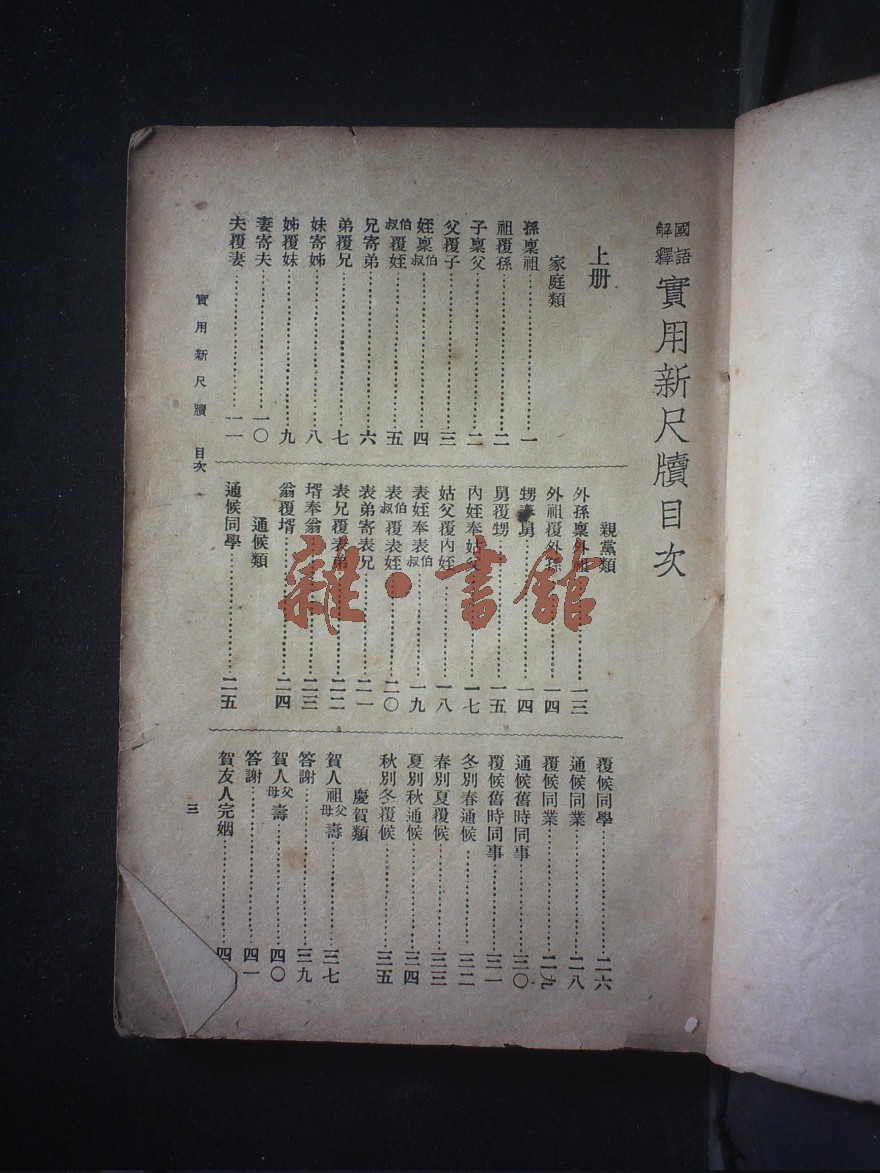 國語解釋實用新尺牘目次
上册
家庭類
孫稟祖……一
祖覆孫……二
子稟父……二
父覆子……三
姪稟伯叔……四
叔伯覆姪……五
兄寄弟……六
弟覆兄……七
妹寄姊……八
姊覆妹……九
妻寄夫……一〇
夫覆妻……一一
親黨類
外孫稟外祖……一三
外祖覆外孫……一四
甥 舅……一四
舅覆甥……一五
內姪奉姑父……一七
姑父覆內姪……一八
表姪奉表伯叔……一九
表叔伯覆表姪……二〇
表弟寄表兄……二一
表兄覆表弟……二二
壻奉翁……二三
翁覆壻……二四
通候類
通候同學……二五
覆候同學……二六
通候同業……二八
覆候同業……二九
通候舊時同事……三〇
覆候舊時同事……三一
冬別春通候……三二
春別夏覆候……三三
夏別秋通候……三四
秋別冬覆候……三五
慶賀類
賀人祖父母壽……三七
答謝……三九
賀人父母壽……四〇
答謝……四一
賀友人完姻……四
實用新尺牘 目次
三
雜·書館